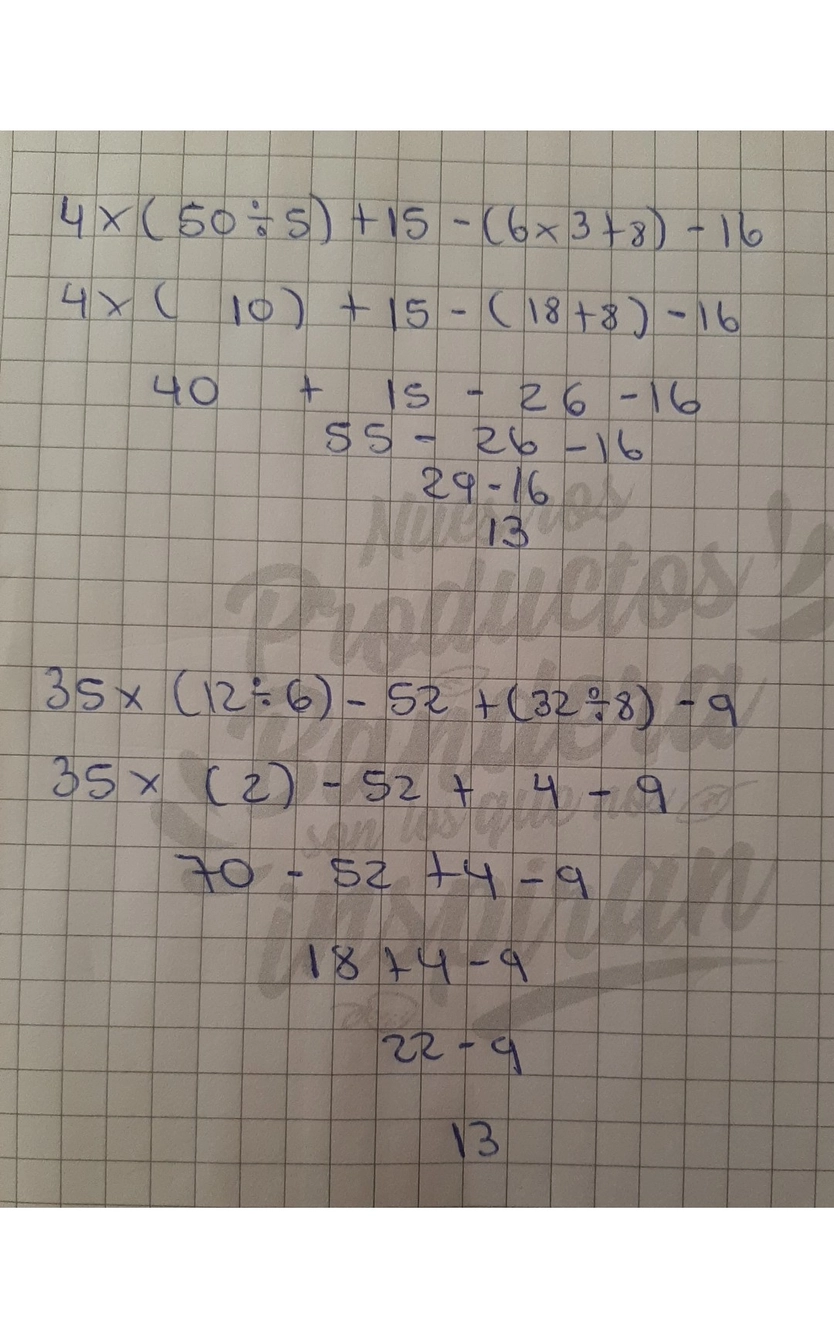 4 × ( 50 ÷ 5 ) + 15 - ( 6 × 3 + 8 ) - 16
4 × ( 10 ) + 15 - ( 18 + 8 ) - 16
40 + 15 - 26 - 16
55 - 26 - 16
29 - 16
13
Nuestros
Productos
Bandera
son los que nos
inspiran
35 × ( 12 ÷ 6 ) - 52 + ( 32 ÷ 8 ) - 9
35 × ( 2 ) - 52 + 4 - 9
70 - 52 + 4 - 9
18 + 4 - 9
22 - 9
13